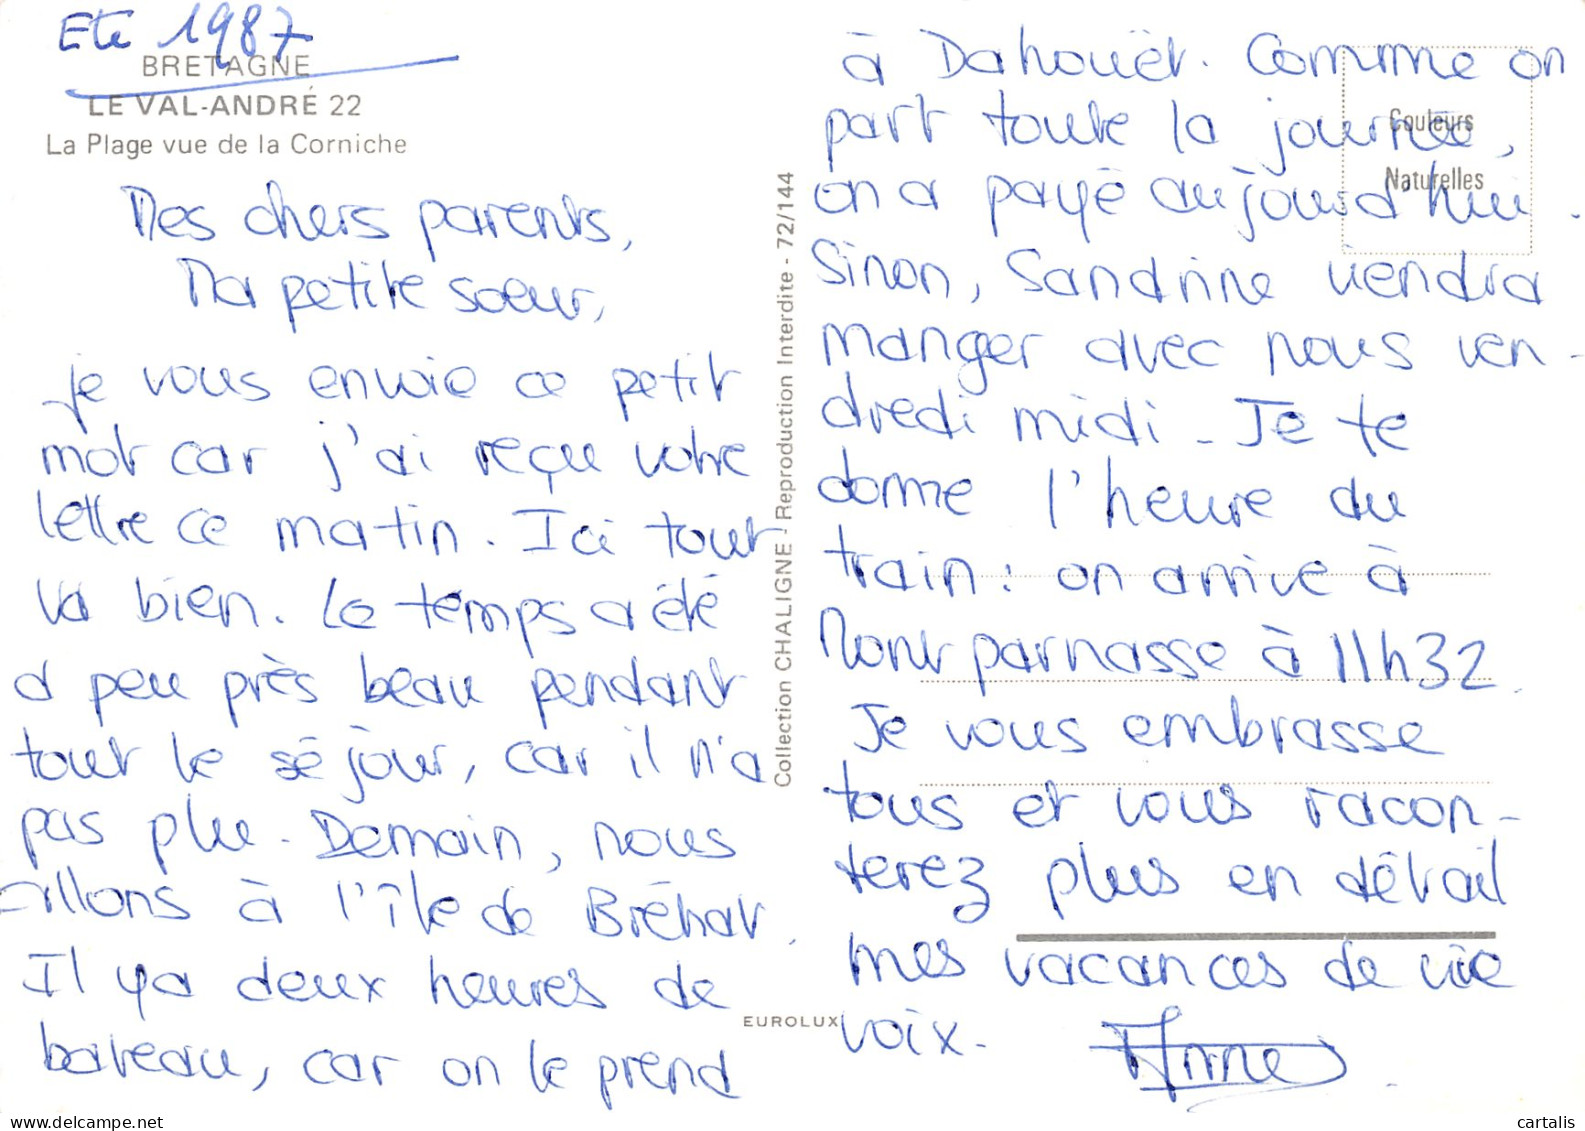 Eté 1987
BRETAGNE
LE VAL-ANDRÉ 22
La Plage vue de la Corniche
Mes chers parents,
Ma petite soeur,
je vous envoie ce petit
mot car j'ai reçu votre
lettre ce matin. Ici tout
va bien. Le temps a été
à peu près beau pendant
tout le séjour, car il n'a
pas plu. Demain, nous
allons à l'île de Bréhat.
Il y a deux heures de
bateau, car on le prend
Collection CHALIGNE - Reproduction Interdite - 72/144
EUROLUX
Couleurs
Naturelles
à Dahouët. Comme on
part toute la journée,
on a payé aujourd'hui.
Sinon, Sandrine viendra
manger avec nous ven-
dredi midi - Je te
donne l'heure du
train : on arrive à
Montparnasse à 11h32.
Je vous embrasse
tous et vous racon-
terez plus en détail
mes vacances de vive
voix.
Anne
www.delcampe.net
cartalis